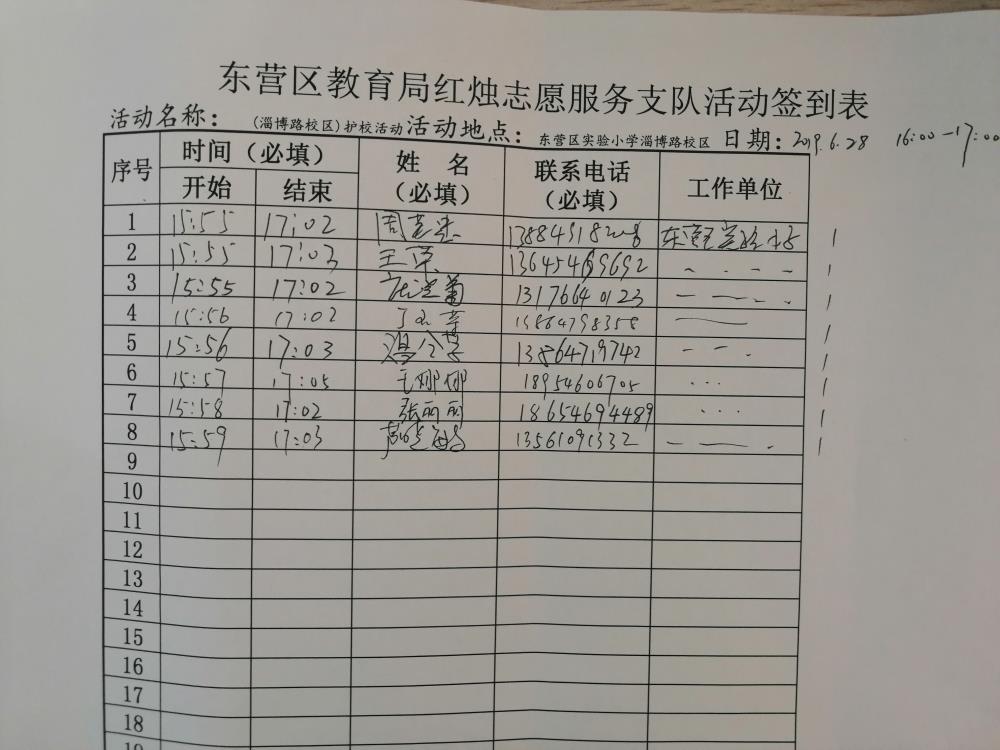 东营区教育局红烛志愿服务支队活动签到表
活动名称：（淄博路校区）护校活动 活动地点：东营区实验小学淄博路校区 日期：2019.6.28 16:00-17:00
序号 时间（必填） 姓名（必填） 联系电话（必填） 工作单位
开始 结束
1 15:55 17:02 东营区实验小学
2 15:55 17:03 王萍 13645469692
3 15:55 17:02 13176640123
4 15:56 17:02 13864798358
5 15:56 17:03 13864719742
6 15:57 17:05 王娜娜 18954606705
7 15:58 17:02 张丽丽 18654694489
8 15:59 17:03 13561091332
9
10
11
12
13
14
15
16
17
18
19